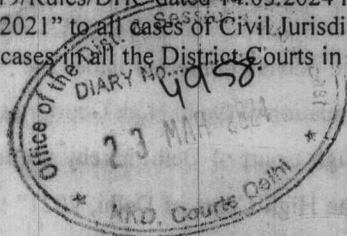 /Rules/DHC dated 14.03.2024
2021” to all cases of Civil Jurisdi
cases in all the District Courts in
Office of the District Sessions
DIARY No.... 4958
23 MAR 2024
★ KKD, Courts Delhi ★